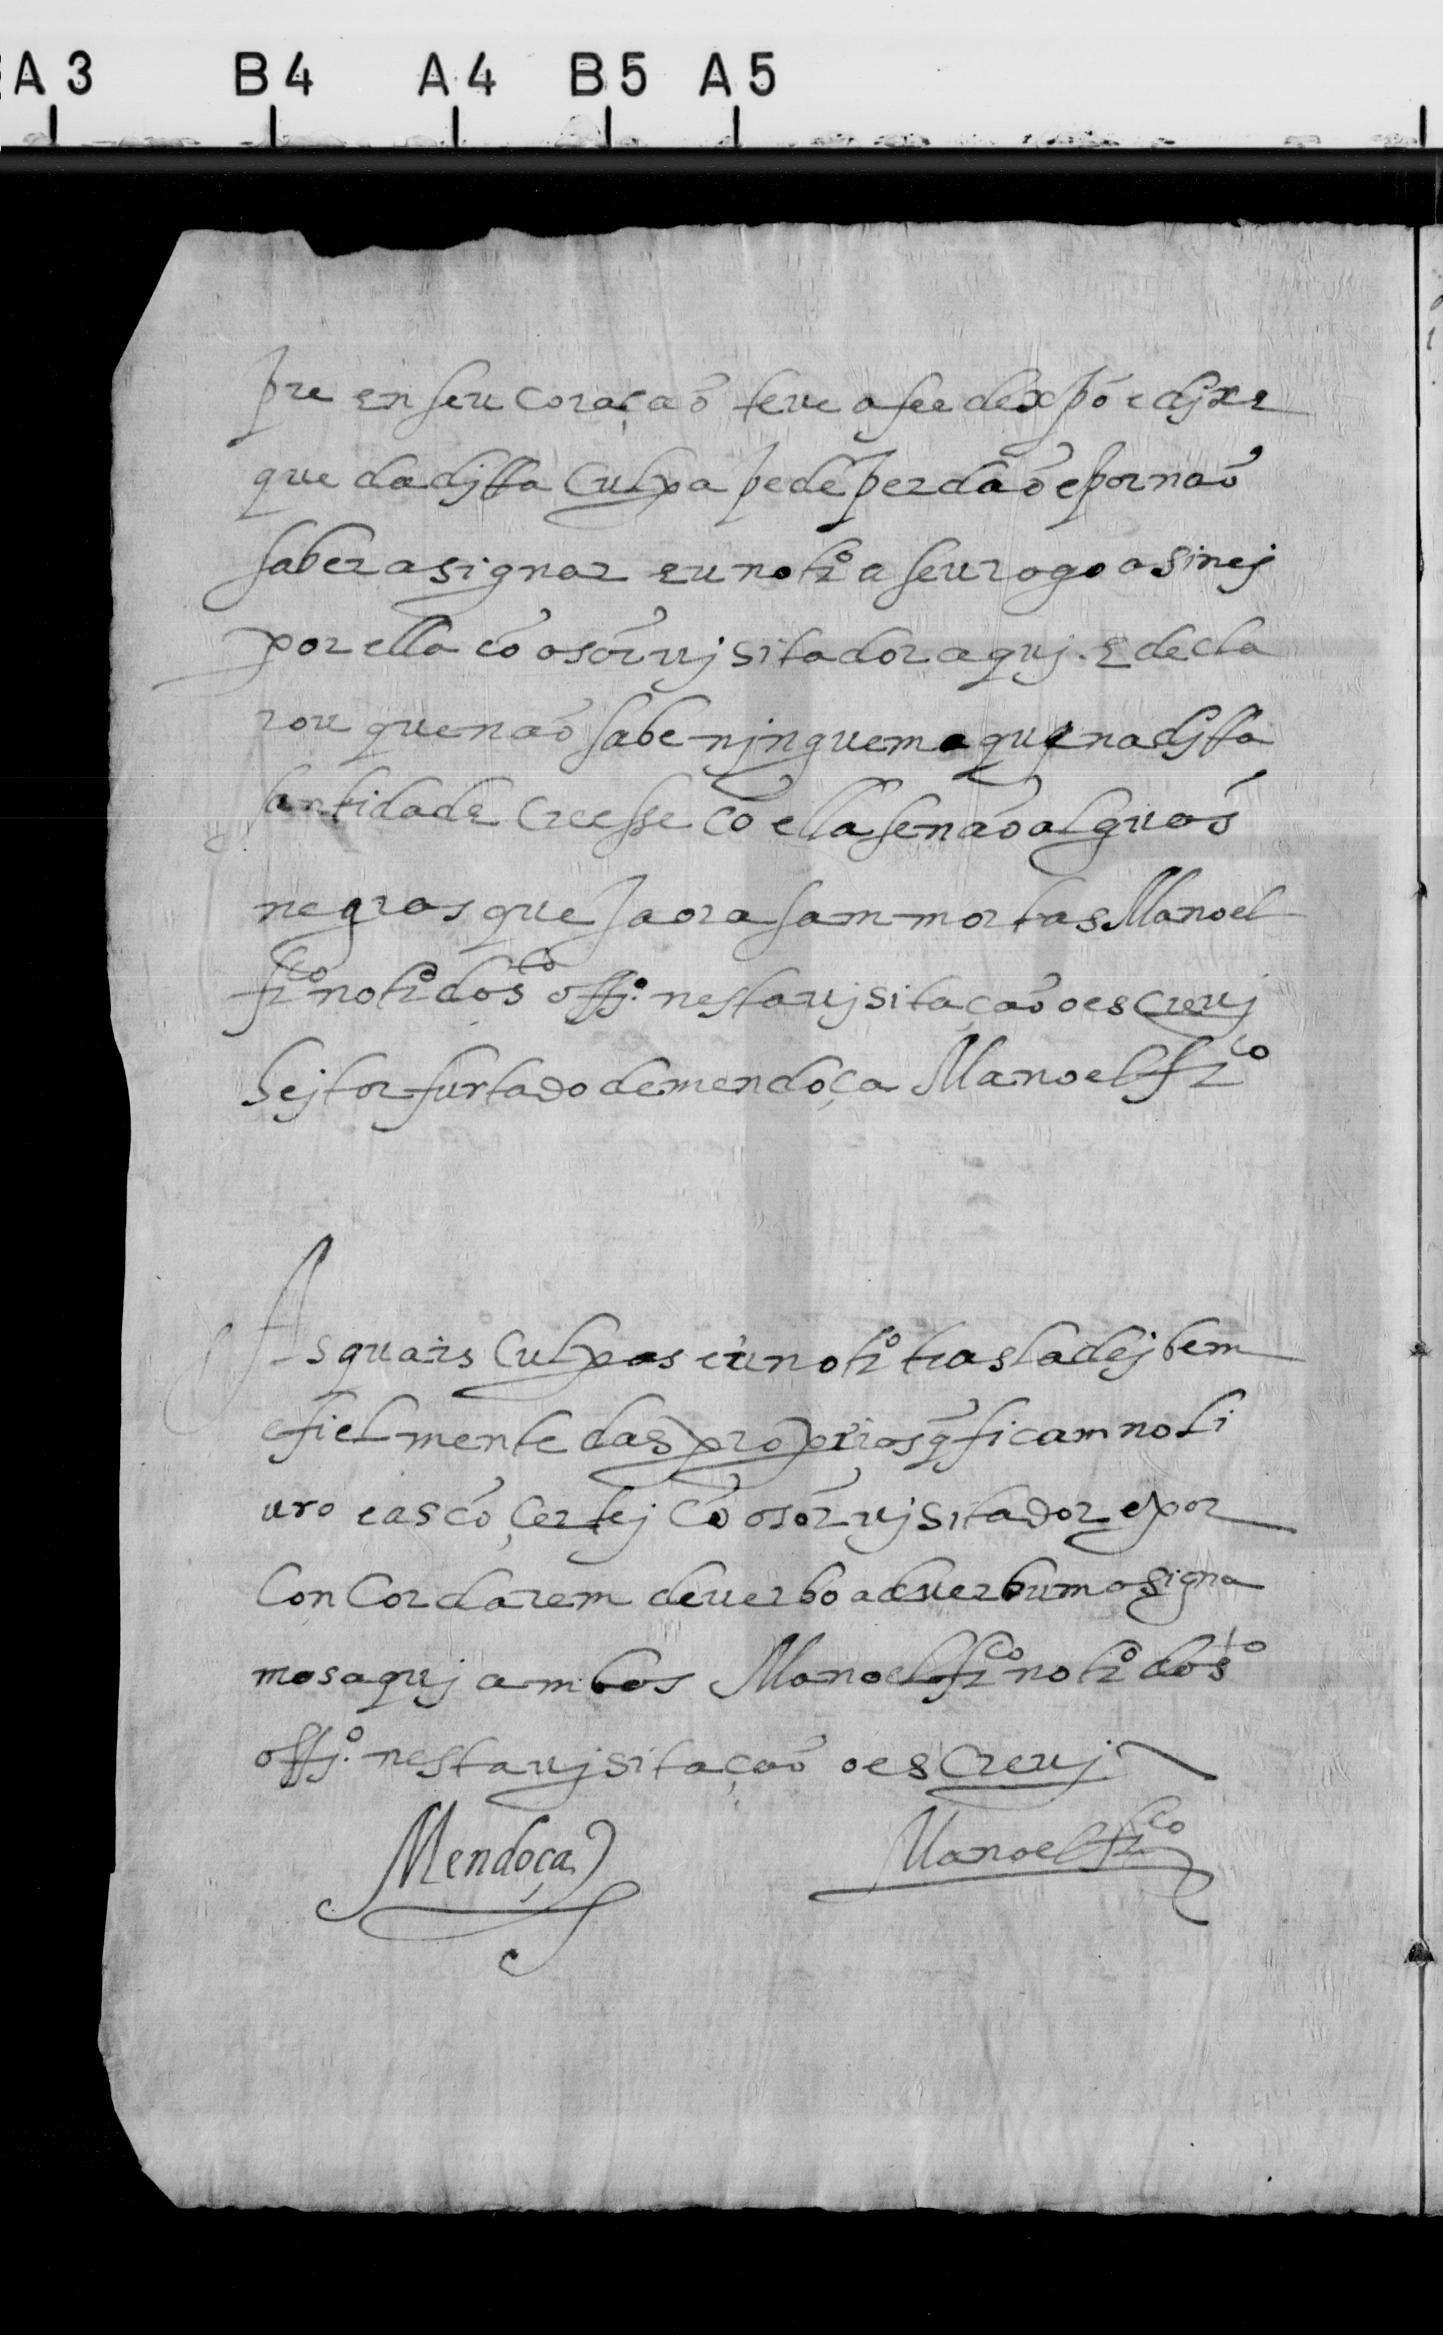 A3 B4 A4 B5 A5
pre en seu coraçaõ teve a fee de xpõ e dixe
que da ditta culpa pede perdaõ e por naõ
saber asignar eu notro a seu rogo asinej
por ella cõ o sõr visitador aquj. E decla
rou que naõ sabe ninguem que na ditta
santidade creesse cõ ella senaõ alguãs
negras que ja ora sam mortas Manoel
frco notro do sto offo. nesta visitaçaõ o escrevj
Hejtor furtado de mendoça Manoel frco
As quais culpas eu notro trasladej bem
e fielmente das proprias q̃ ficam no li
vro e as cõçertej cõ o sõr visitador e por
Concordarem de verbo ad verbum asigna
mos aquj ambos Manoel frco notro do sto
offo. nesta visitaçaõ o escrevj
Mendoça Manoel frco